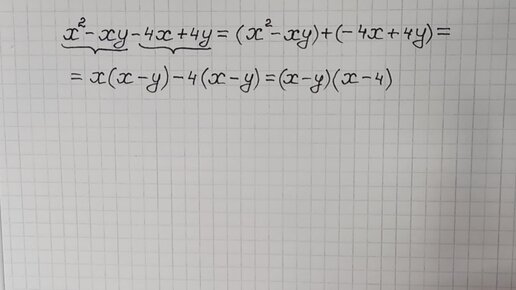 x² - xy - 4x + 4y = (x² - xy) + (-4x + 4y) =
= x(x - y) - 4(x - y) = (x - y)(x - 4)